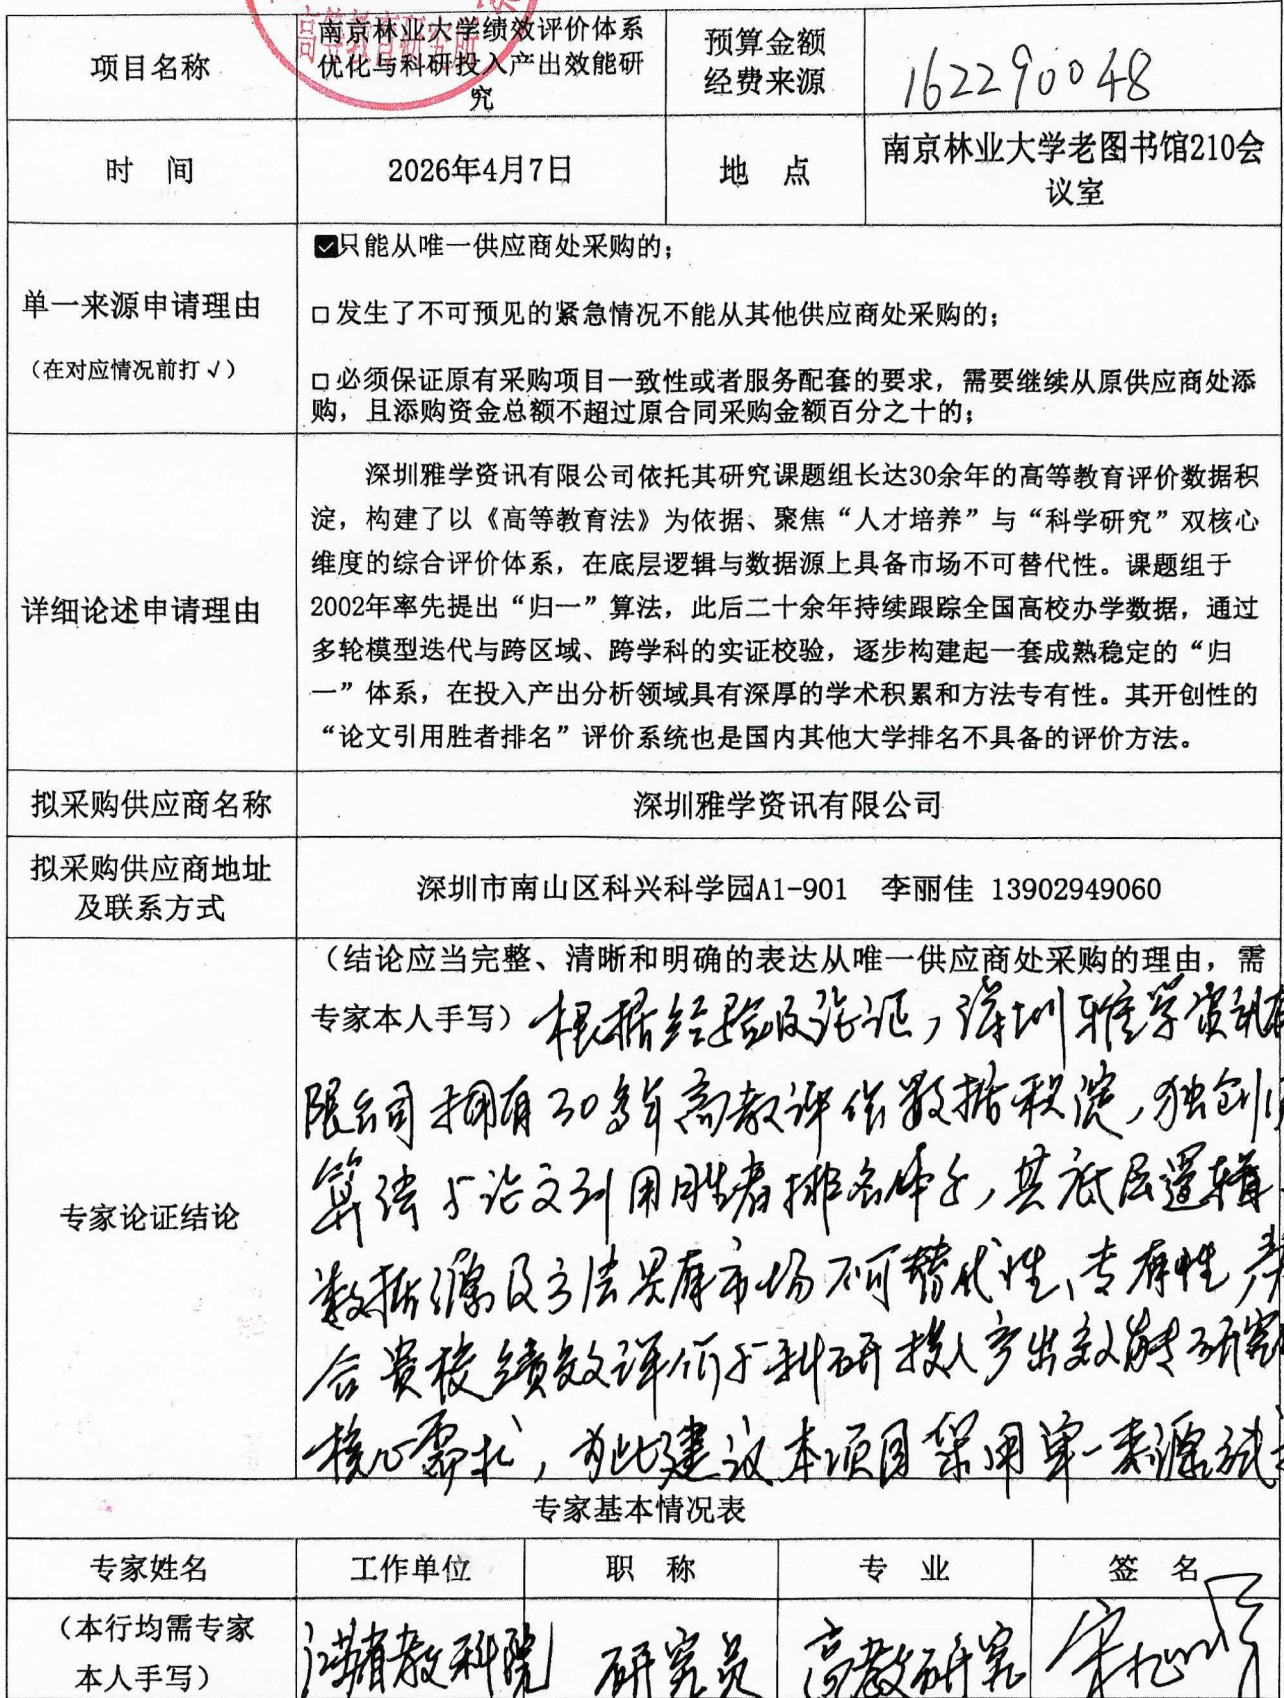 项目名称
南京林业大学绩效评价体系
优化与科研投入产出效能研
究
预算金额
经费来源
162290048
时 间
2026年4月7日
地 点
南京林业大学老图书馆210会
议室
单一来源申请理由
（在对应情况前打√）
☑只能从唯一供应商处采购的；
□发生了不可预见的紧急情况不能从其他供应商处采购的；
□必须保证原有采购项目一致性或者服务配套的要求，需要继续从原供应商处添
购，且添购资金总额不超过原合同采购金额百分之十的；
详细论述申请理由
深圳雅学资讯有限公司依托其研究课题组长达30余年的高等教育评价数据积
淀，构建了以《高等教育法》为依据、聚焦“人才培养”与“科学研究”双核心
维度的综合评价体系，在底层逻辑与数据源上具备市场不可替代性。课题组于
2002年率先提出“归一”算法，此后二十余年持续跟踪全国高校办学数据，通过
多轮模型迭代与跨区域、跨学科的实证校验，逐步构建起一套成熟稳定的“归
一”体系，在投入产出分析领域具有深厚的学术积累和方法专有性。其开创性的
“论文引用胜者排名”评价系统也是国内其他大学排名不具备的评价方法。
拟采购供应商名称
深圳雅学资讯有限公司
拟采购供应商地址
及联系方式
深圳市南山区科兴科学园A1-901 李丽佳 13902949060
专家论证结论
（结论应当完整、清晰和明确的表达从唯一供应商处采购的理由，需
专家本人手写）根据经验及论证，深圳雅学资讯有
限公司拥有30多年高教评价数据积淀，独创
算法与论文引用胜者排名体系，其底层逻辑、
数据源及方法具有市场不可替代性、专有性，
合贵校绩效评价与科研投入产出效能研究
核心需求，为此建议本项目采用单一来源
专家基本情况表
专家姓名
工作单位
职 称
专 业
签 名
（本行均需专家
本人手写）
江苏省教科院
研究员
高教研究